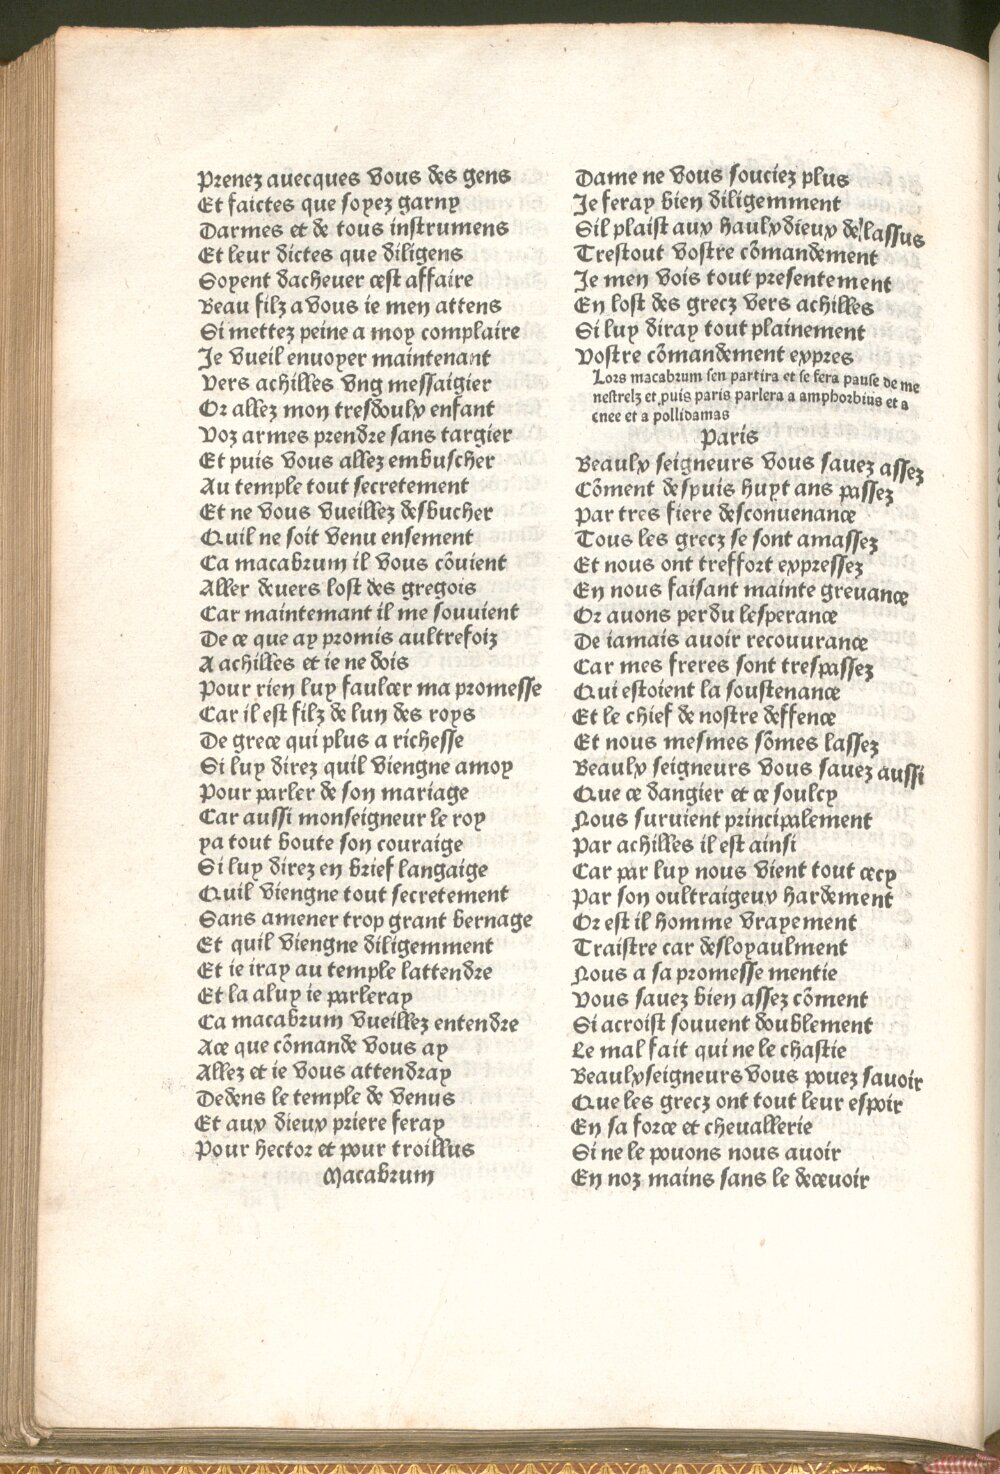 Prenez auecques vous des gens
Et faictes que soyez garny
Darmes et de tous instrumens
Et leur dictes que diligens
Soyent dacheuer cest affaire
Beau filz a vous ie men attens
Si mettez peine a moy complaire
Je vueil enuoyer maintenant
Vers achilles vng messaigier
Or allez mon tresdoulx enfant
Voz armes prendre sans targier
Et puis vous allez embuscher
Au temple tout secretement
Et ne vous vueillez desbucher
Quil ne soit venu ensement
Ca macabrum il vous cõuient
Aller deuers lost des gregois
Car maintemant il me souuient
De ce que ay promis aultrefoiz
A achilles et ie ne dois
Pour rien luy faulcer ma promesse
Car il est filz de lun des roys
De grece qui plus a richesse
Si luy direz quil viengne amoy
Pour parler de son mariage
Car aussi monseigneur le roy
ya tout boute son couraige
Si luy direz en brief langaige
Quil viengne tout secretement
Sans amener trop grant bernage
Et quil viengne diligemment
Et ie iray au temple lattendre
Et la aluy ie parleray
Ca macabrum vueillez entendre
Ace que cõmande vous ay
Allez et ie vous attendray
Dedens le temple de venus
Et aux dieux priere feray
Pour hector et pour troillus
Macabrum
Dame ne vous souciez plus
Je feray bien diligemment
Sil plaist aux haulx dieux de lassus
Trestout vostre cõmandement
Je men vois tout presentement
En lost des grecz vers achilles
Si luy diray tout plainement
Vostre cõmandement expres
Lors macabrum sen partira et se fera pause de me
nestrelz et puis paris parlera a amphorbius et a
enee et a pollidamas
Paris
Beaulx seigneurs vous sauez assez
Cõment despuis huyt ans passez
Par tres fiere desconuenance
Tous les grecz se sont amassez
Et nous ont treffort expressez
En nous faisant mainte greuance
Or auons perdu lesperance
De iamais auoir recouurance
Car mes freres sont trespassez
Qui estoient la soustenance
Et le chief de nostre deffence
Et nous mesmes sõmes lassez
Beaulx seigneurs vous sauez aussi
Que ce dangier et ce soulcy
Nous suruient principalement
Par achilles il est ainsi
Car par luy nous vient tout cecy
Par son oultraigeux hardement
Or est il homme vrayement
Traistre car desloyaulment
Nous a sa promesse mentie
Vous sauez bien assez cõment
Si acroist souuent doublement
Le mal fait qui ne le chastie
Beaulxseigneurs vous pouez sauoir
Que les grecz ont tout leur espoir
En sa force et cheuallerie
Si ne le pouons nous auoir
En noz mains sans le deceuoir